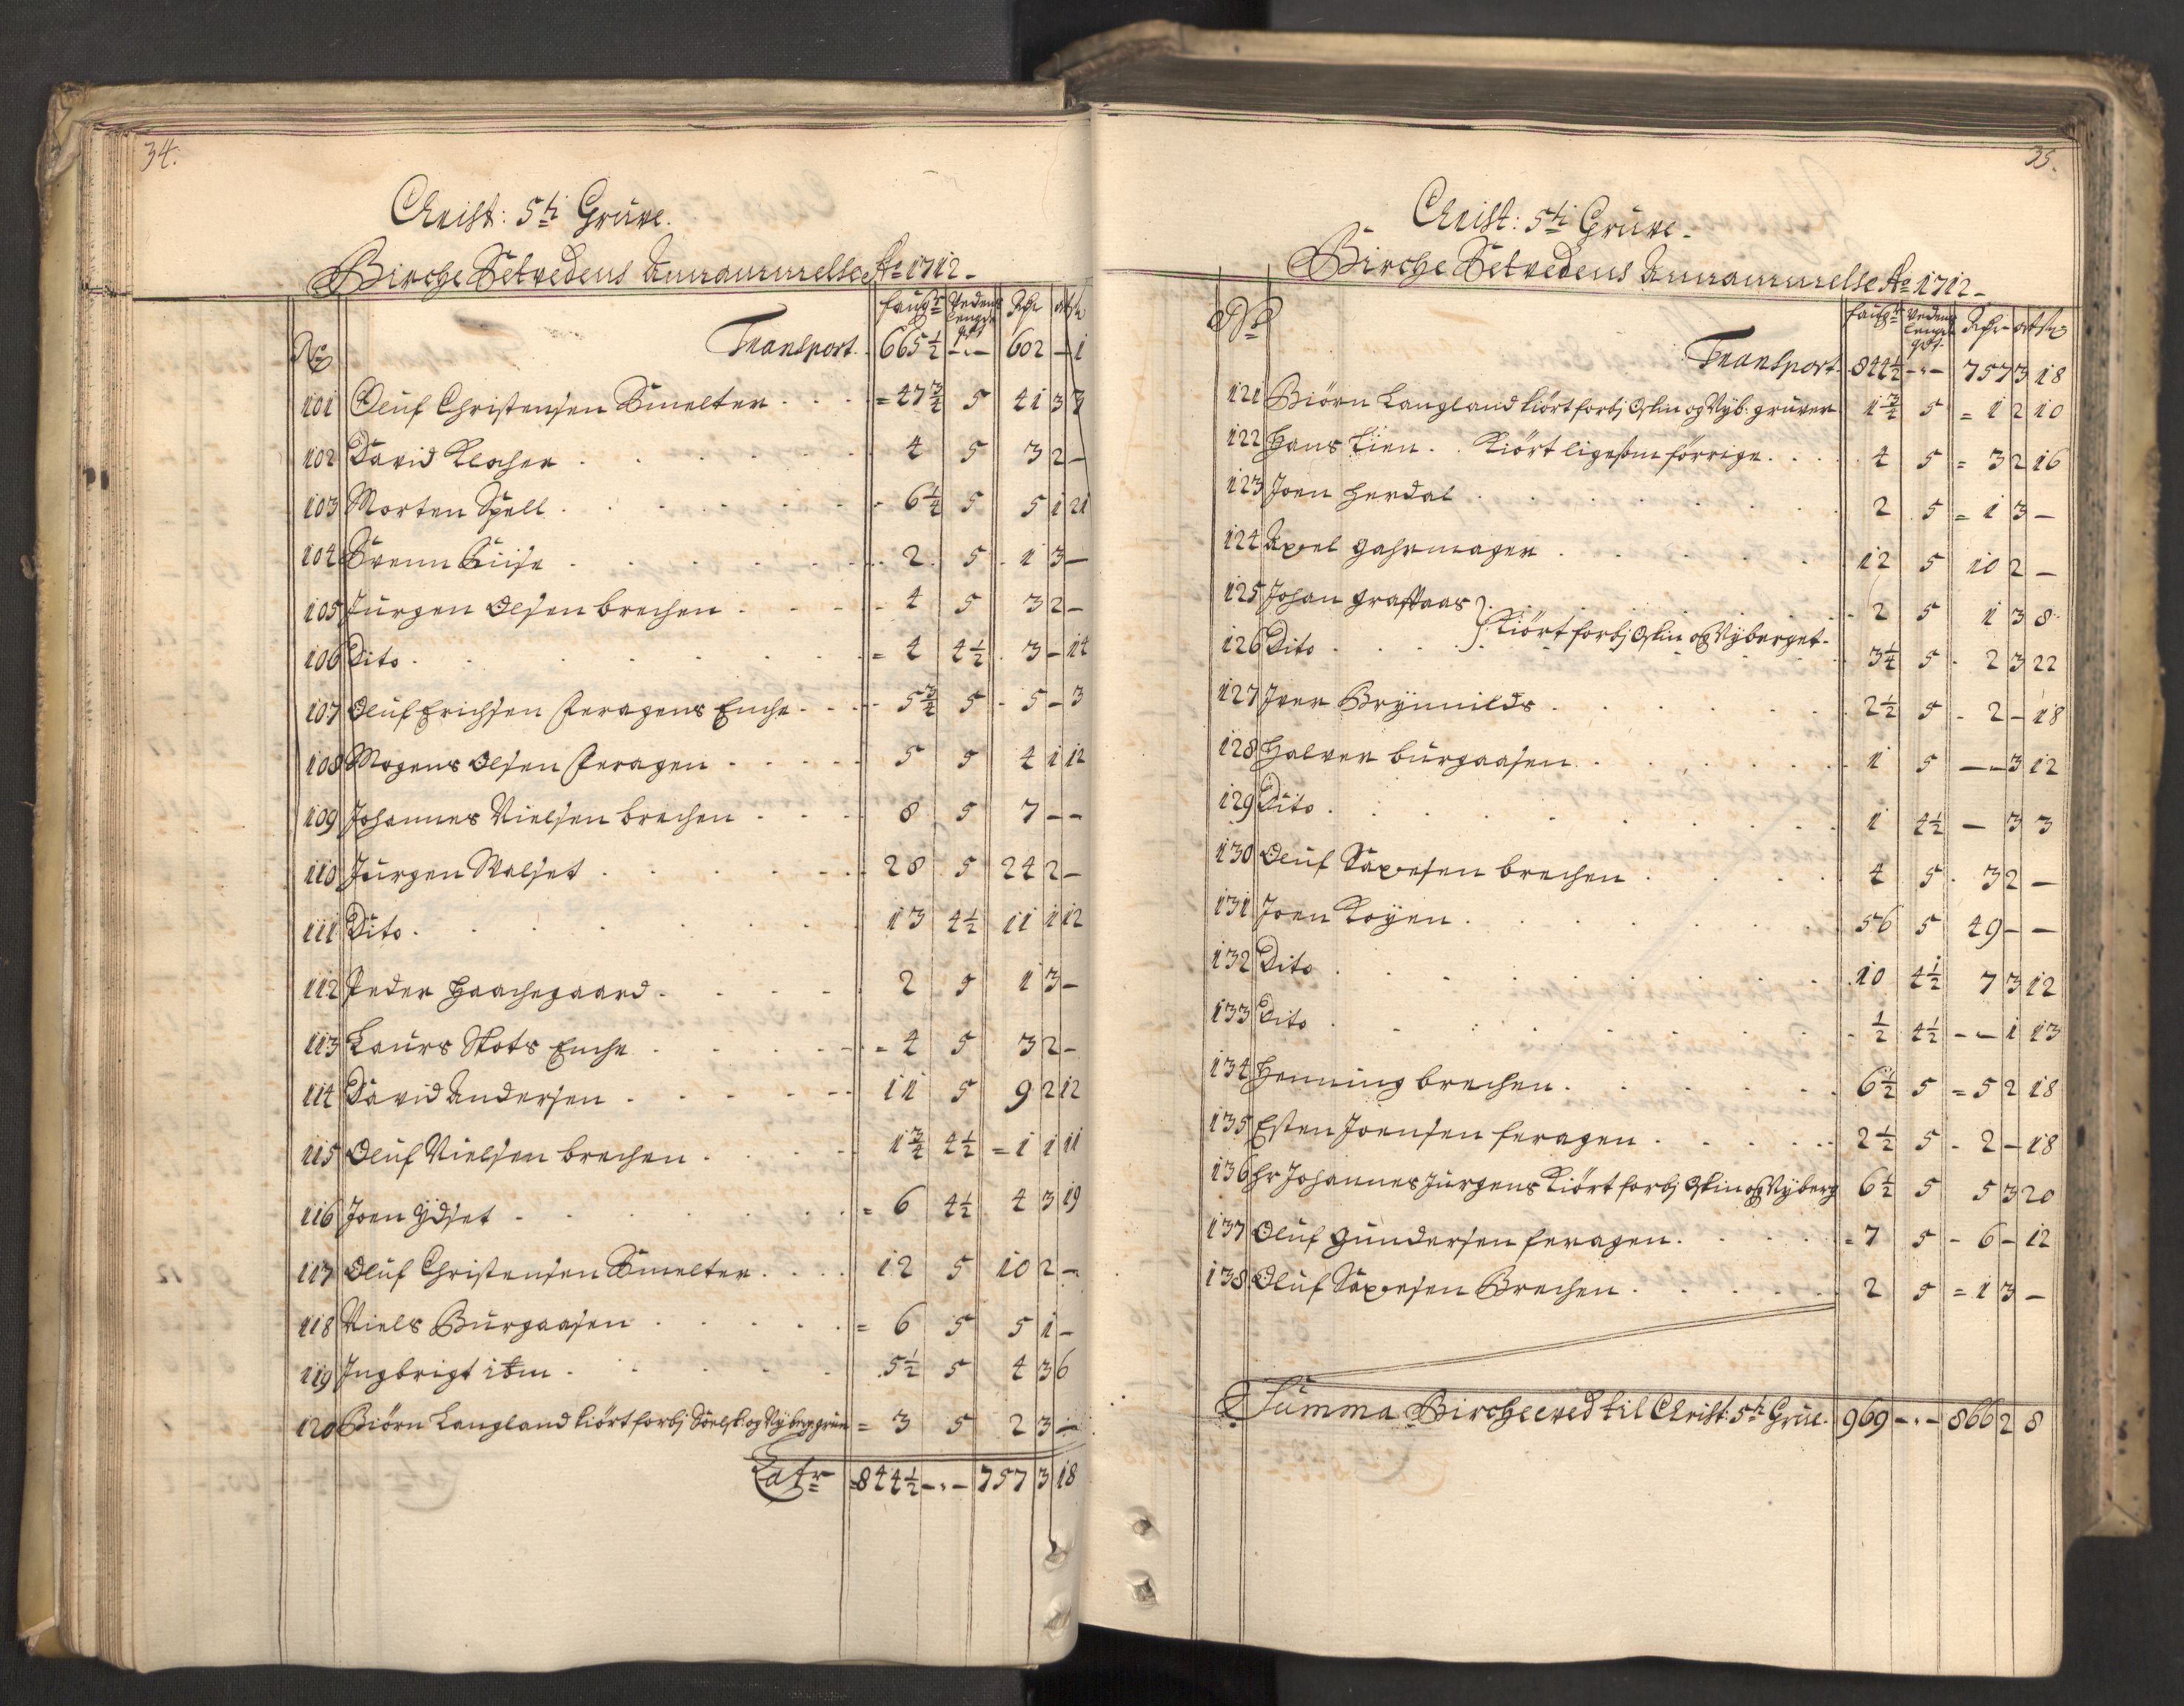 34.
Christ: 5ti Grüve.
Birche Setvedens Annammelse Ao 1712.
No
faugr Vedens lengde qrt Rdr ort ß
Transport. 665½ -.- 602 - 1
101 Oluf Christensen Smelter . . . = 47¾ 5 41 3 3
102 David Klocher . . . 4 5 3 2 -
103 Morten Spell . . . - 6¼ 5 5 1 21
104 Svenn . . . 2 5 1 3 -
105 Jürgen Olsen brechen . . . 4 5 3 2 -
106 Dito . . . = 4 4½ 3 - 14
107 Oluf Erichsen feragens Enche . . . 5¾ 5 5 - 3
108 Mogens Olsen feragen . . . 5 5 4 1 12
109 Johannes Nielsen brechen . . . 8 5 7 - -
110 Jürgen Walset . . . 28 5 24 2 -
111 Dito . . . 13 4½ 11 1 12
112 Peder Haachegaard . . . 2 5 1 3 -
113 Laurs Skots Enche . . . = 4 5 3 2 -
114 David Andersen . . . 11 5 9 2 12
115 Oluf Nielsen brechen . . . 1¾ 4½ = 1 1 11
116 Joen Ydset . . . = 6 4½ 4 3 19
117 Oluf Christensen Smelter . . . 12 5 10 2 -
118 Niels Bürgaasen . . . = 6 5 5 1 -
119 Ingbrigt itm . . . 5½ 5 4 3 6
120 Biörn Langland kiört forbj og Nyberg grüv = 3 5 2 3 -
Latr 844½ -.- 757 3 18
35.
Christ: 5ti Grüve.
Birche Setvedens Annammelse Ao 1712.
No
faugr Vedens lengde qrt. Rdr ort ß
Transport. 844½ -.- 757 3 18
121 Biörn Langland kiört forbj Qvin og Nyb: grüver 1¾ 5 = 1 2 10
122 Hans Lien . . Kiört ligesom förrige . . . 4 5 = 3 2 16
123 Joen Herdal . . . 2 5 = 1 3 -
124 Axel Gahrmager . . . 12 5 10 2 -
125 Johan graffaas . . . 2 5 1 3 8
Kiört forbj Qvin og Nyberget.
126 Dito . . . 3¼ 5 2 3 22
127 Iver Brynnilds . . . 2½ 5 - 2 - 18
128 Halver bürgaasen . . . 1 5 - 3 12
129 Dito . . . 1 4½ - 3 3
130 Oluf Saxesen brechen . . . 4 5 3 2 -
131 Joen Koyen . . . 56 5 49 - -
132 Dito . . . 10 4½ 7 3 12
133 Dito . . . ½ 4½ - 1 13
134 Henning brechen . . . 6½ 5 = 5 2 18
135 Esten Joensen feragen . . . 2½ 5 - 2 - 18
136 Hr Johannes Jürgens Kiört forbj Qvin og Nyberg 6½ 5 5 3 20
137 Oluf Gundersen feragen . . . = 7 5 - 6 - 12
138 Oluf Saxesen Brechen . . . 2 5 = 1 3 -
Summa Bircheved til Christ: 5ti Grüve. 969 -.- 866 2 8